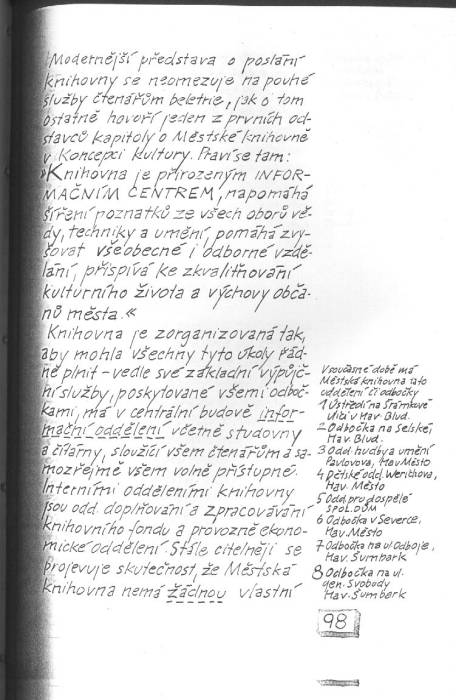 Modernější představa o poslání
knihovny se neomezuje na pouhé
služby čtenářům beletrie, jak o tom
ostatně hovoří jeden z prvních od-
stavců kapitoly o Městské knihovně
v Koncepci kultury. Praví se tam:
»Knihovna je přirozeným INFOR-
MAČNÍM CENTREM, napomáhá
šíření poznatků ze všech oborů vě-
dy, techniky a umění, pomáhá zvy-
šovat všeobecné i odborné vzdě-
lání, přispívá ke zkvalitňování
kulturního života a výchovy obča-
nů města.«
Knihovna je zorganizovaná tak,
aby mohla všechny tyto úkoly řád-
ně plnit – vedle své základní výpůjč-
ní služby, poskytované všemi odboč-
kami, má v centrální budově infor-
mační oddělení včetně studovny
a čítárny, sloužící všem čtenářům a sa-
mozřejmě všem volně přístupné.
Interními odděleními knihovny
jsou odd. doplňování a zpracovávání
knihovního fondu a provozně ekono-
mické oddělení. Stále citelněji se
projevuje skutečnost, že Městská
knihovna nemá žádnou vlastní
V současné době má
Městská knihovna tato
oddělení či odbočky
1 Ústředí na Šrámkově
ulici v Hav. Blud.
2 Odbočka na Selské,
Hav. Blud.
3 Odd. hudby a umění
Pavlovova, Hav. Město
4 Dětské odd. Werichova,
Hav. Město
5 Odd. pro dospělé
SPOL. DŮM
6 Odbočka v Severce,
Hav. Město
7 Odbočka na ul. Odboje,
Hav. Šumbark
8 Odbočka na ul.
gen. Svobody
Hav. Šumbark
98